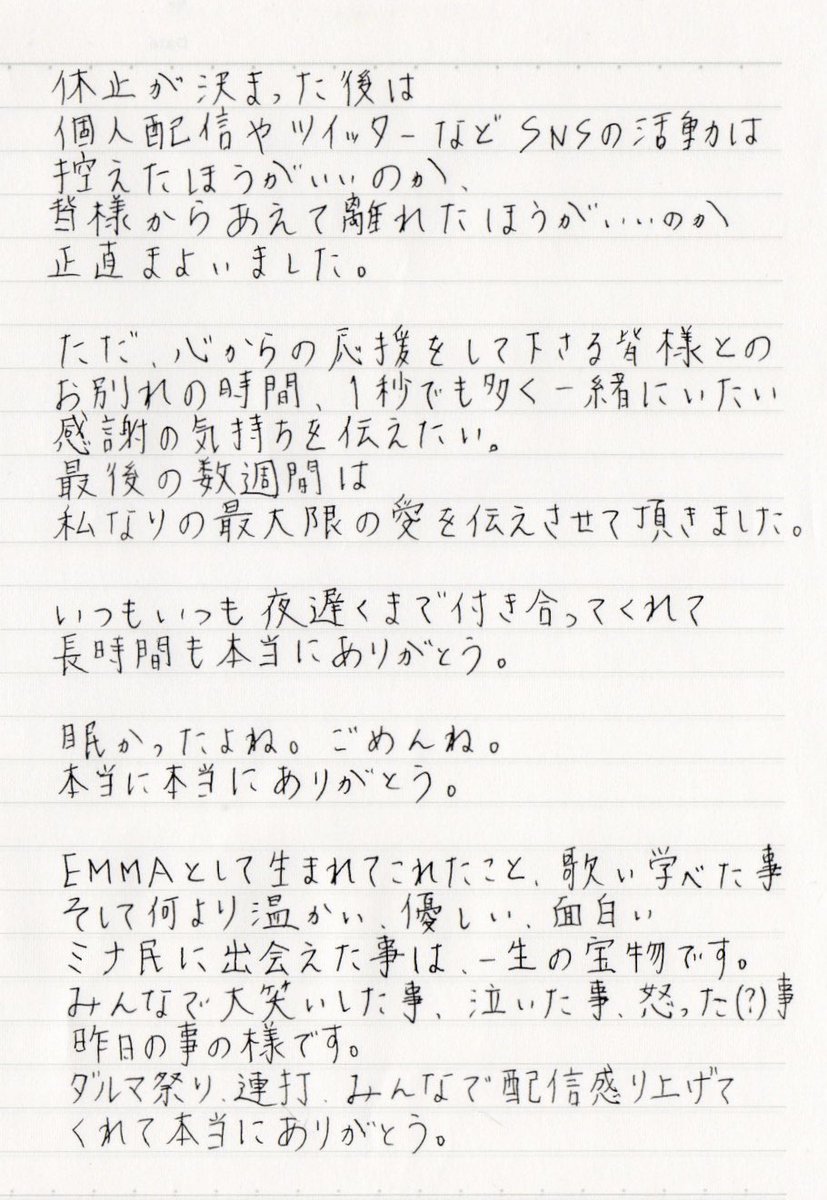 休止が決まった後は
個人配信やツイッターなどSNSの活動は
控えたほうがいいのか、
皆様からあえて離れたほうがいいのか
正直まよいました。
ただ、心からの応援をして下さる皆様との
お別れの時間、1秒でも多く一緒にいたい
感謝の気持ちを伝えたい。
最後の数週間は
私なりの最大限の愛を伝えさせて頂きました。
いつもいつも夜遅くまで付き合ってくれて
長時間も本当にありがとう。
眠かったよね。ごめんね。
本当に本当にありがとう。
EMMAとして生まれてこれたこと、歌い学べた事
そして何より温かい、優しい、面白い
ミナ民に出会えた事は、一生の宝物です。
みんなで大笑いした事、泣いた事、怒った(?)事
昨日の事の様です。
ダルマ祭り、連打、みんなで配信感り上げて
くれて本当にありがとう。